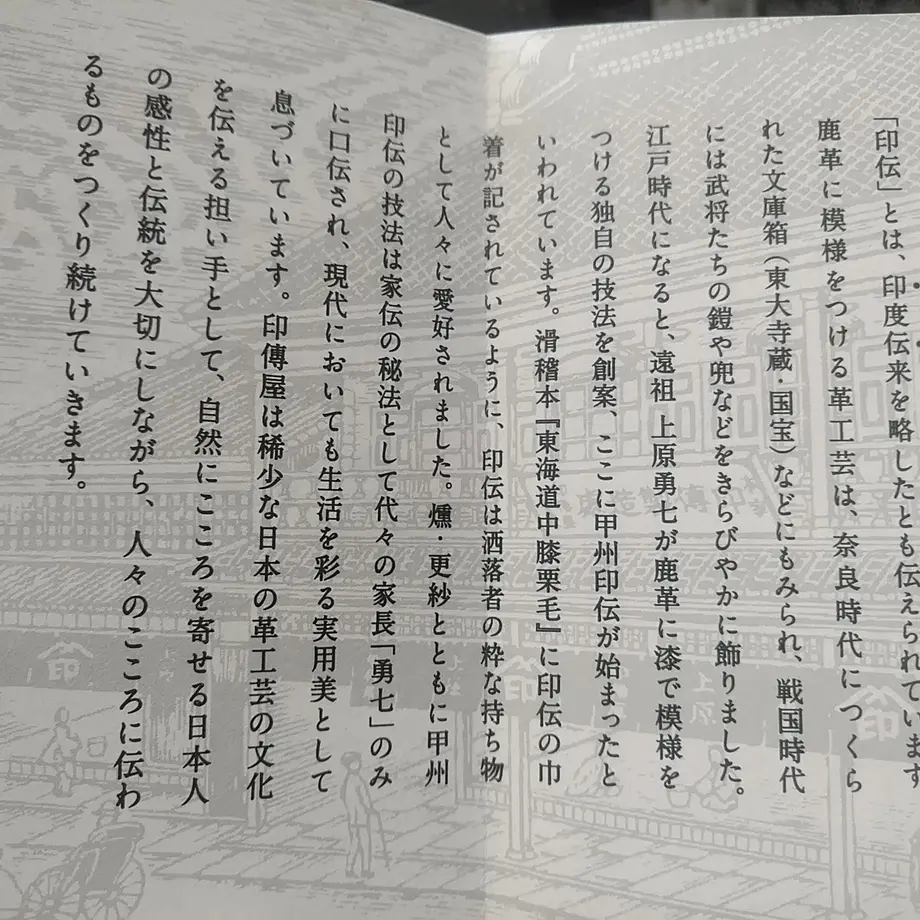 「印伝」とは、印度伝来を略したとも伝えられています
鹿革に模様をつける革工芸は、奈良時代につくら
れた文庫箱(東大寺蔵・国宝)などにもみられ、戦国時代
には武将たちの鎧や兜などをきらびやかに飾りました。
江戸時代になると、遠祖 上原勇七が鹿革に漆で模様を
つける独自の技法を創案、ここに甲州印伝が始まったと
いわれています。滑稽本『東海道中膝栗毛』に印伝の巾
着が記されているように、印伝は洒落者の粋な持ち物
として人々に愛好されました。燻・更紗とともに甲州
印伝の技法は家伝の秘法として代々の家長「勇七」のみ
に口伝され、現代においても生活を彩る実用美として
息づいています。印傳屋は稀少な日本の革工芸の文化
を伝える担い手として、自然にこころを寄せる日本人
の感性と伝統を大切にしながら、人々のこころに伝わ
るものをつくり続けていきます。